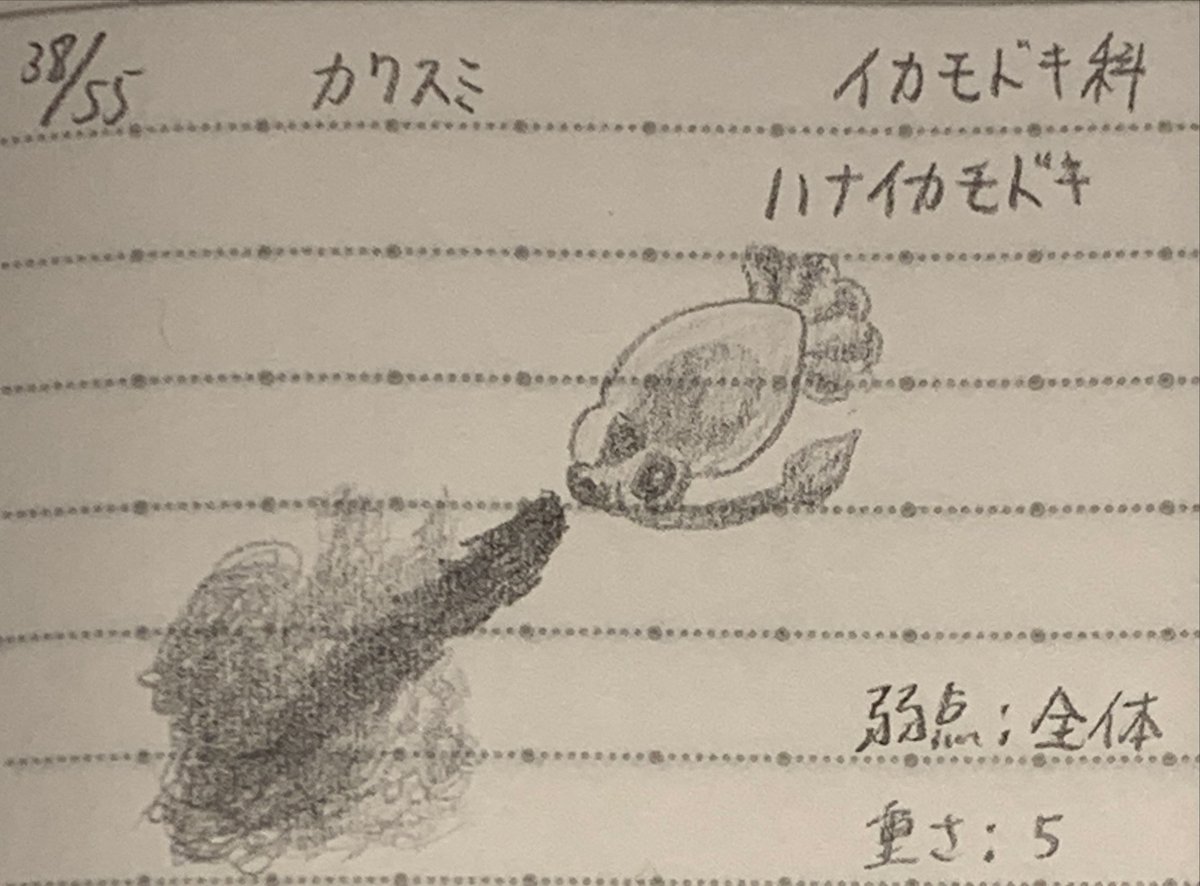 38/55 カクスミ イカモドキ科
ハナイカモドキ
弱点:全体
重さ:5